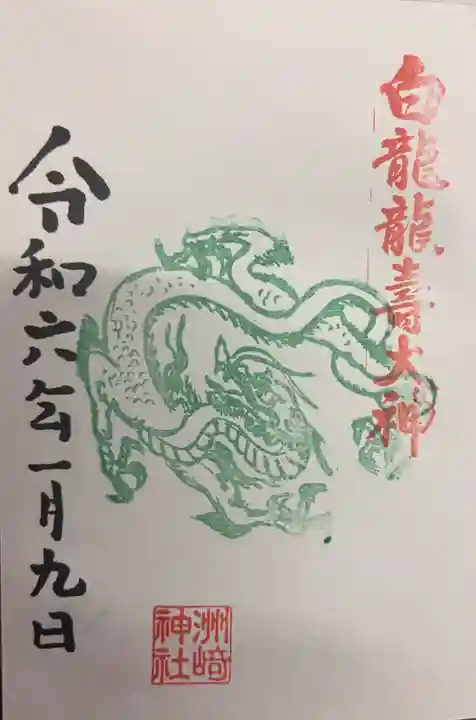 白龍龍壽大神
令和六年一月九日
洲崎神社